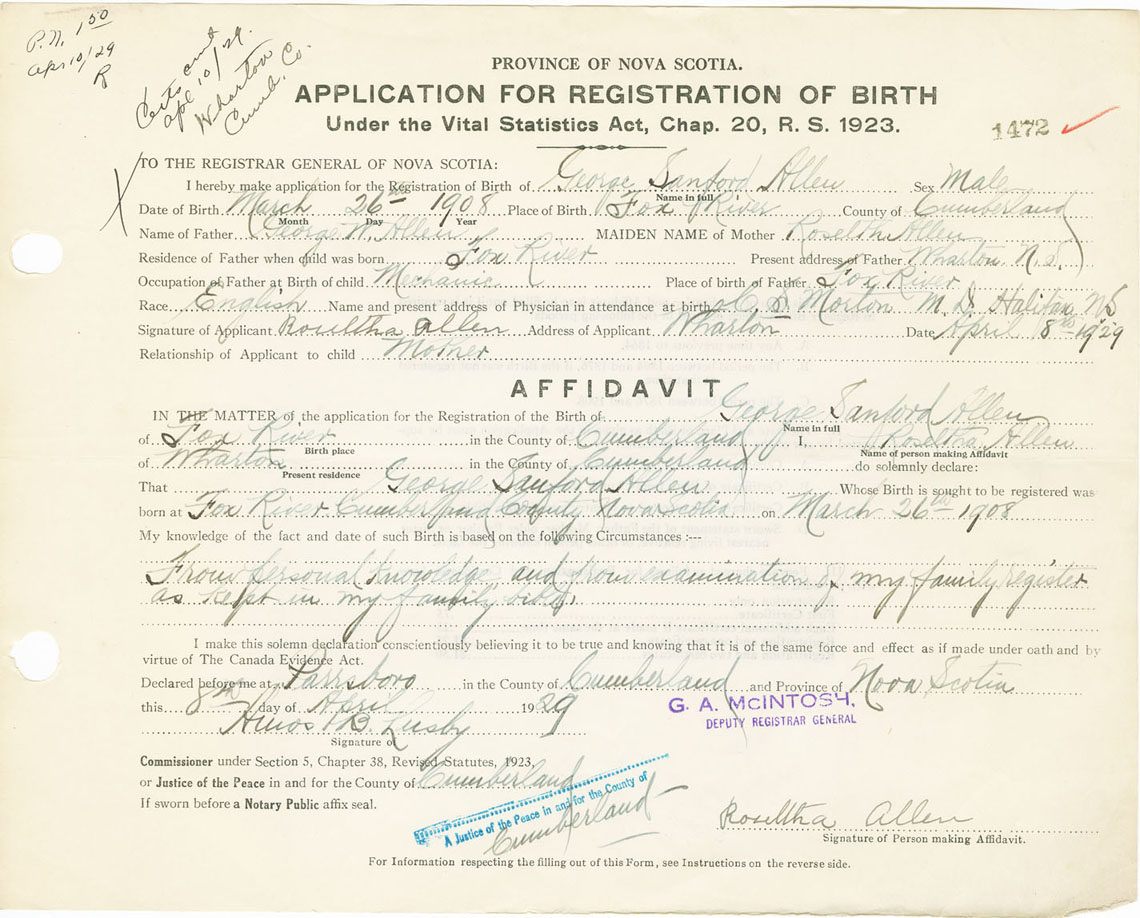 P.N. 1.50
Apr 10/29
R
Certs. and
apl 10/29.
Wharton
Cumb. Co.
PROVINCE OF NOVA SCOTIA.
APPLICATION FOR REGISTRATION OF BIRTH
Under the Vital Statistics Act, Chap. 20, R. S. 1923.
1472
TO THE REGISTRAR GENERAL OF NOVA SCOTIA:
I hereby make application for the Registration of Birth of George Sanford Allen Sex Male
Name in full
Date of Birth March 26th 1908 Place of Birth Fox River County of Cumberland
Month Day Year
Name of Father George W. Allen MAIDEN NAME of Mother Roseltha Allen
Residence of Father when child was born Fox River Present address of Father Wharton N.S.
Occupation of Father at Birth of child Mechanic Place of birth of Father Fox River
Race English Name and present address of Physician in attendance at birth C S Morton M. D. Halifax NS
Signature of Applicant Roseltha Allen Address of Applicant Wharton Date April 8th 1929
Relationship of Applicant to child Mother
AFFIDAVIT
IN THE MATTER of the application for the Registration of the Birth of George Sanford Allen
Name in full
of Fox River in the County of Cumberland I, Roseltha Allen
Birth place Name of person making Affidavit
of Wharton in the County of Cumberland do solemnly declare:
Present residence
That George Sanford Allen Whose Birth is sought to be registered was
born at Fox River Cumberland County Nova Scotia on March 26th 1908
My knowledge of the fact and date of such Birth is based on the following Circumstances :---
From personal knowledge and from examination of my family register
as kept in my family bible,
I make this solemn declaration conscientiously believing it to be true and knowing that it is of the same force and effect as if made under oath and by
virtue of The Canada Evidence Act.
Declared before me at Parrsboro in the County of Cumberland and Province of Nova Scotia
this 8th day of April 1929
G. A. McINTOSH,
DEPUTY REGISTRAR GENERAL
Amos B. Lusby
Signature of
Commissioner under Section 5, Chapter 38, Revised Statutes, 1923,
or Justice of the Peace in and for the County of Cumberland
If sworn before a Notary Public affix seal.
A Justice of the Peace in and for the County of
Cumberland
Roseltha Allen
Signature of Person making Affidavit.
For Information respecting the filling out of this Form, see Instructions on the reverse side.